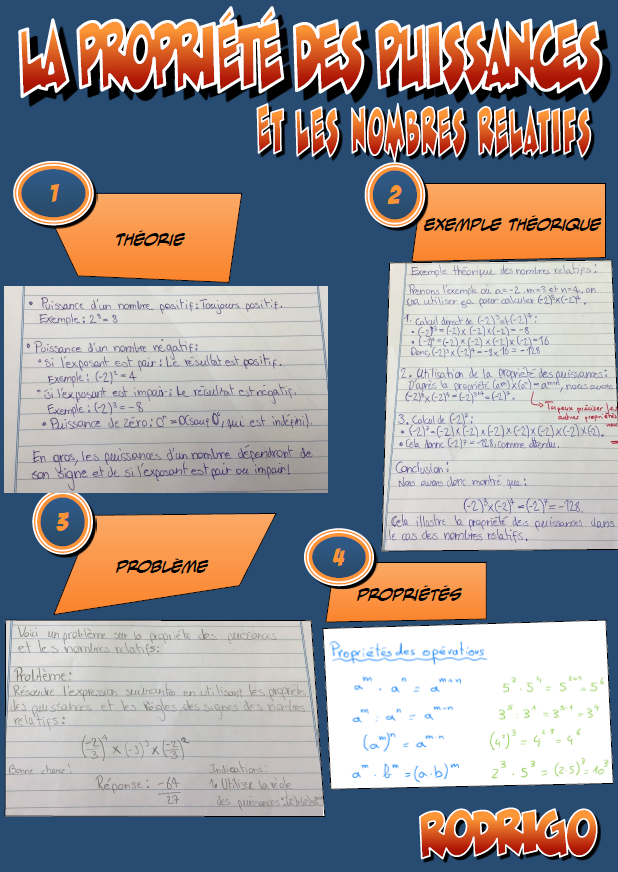 LA PROPRIÉTÉ DES PUISSANCES
ET LES NOMBRES RELATIFS
1
THÉORIE
• Puissance d'un nombre positif: Toujours positif.
Exemple: 2³ = 8
• Puissance d'un nombre négatif:
• Si l'exposant est pair: Le résultat est positif.
Exemple: (-2)² = 4
• Si l'exposant est impair: Le résultat est négatif.
Exemple: (-2)³ = -8
• Puissance de zéro: 0ⁿ = 0 (sauf 0⁰, qui est indéfini).
En gros, les puissances d'un nombre dépendront de
son signe et de si l'exposant est pair ou impair!
2
EXEMPLE THÉORIQUE
Exemple théorique des nombres relatifs:
Prenons l'exemple où a=-2, m=3 et n=4, on
va utiliser ça pour calculer (-2)³×(-2)⁴.
1. Calcul direct de (-2)³ et (-2)⁴:
• (-2)³ = (-2) × (-2) × (-2) = -8
• (-2)⁴ = (-2) × (-2) × (-2) × (-2) = 16
Donc, (-2)³ × (-2)⁴ = -8 × 16 = -128
2. Utilisation de la Propriété des puissances:
D'après la propriété (aᵐ)×(aⁿ) = aᵐ⁺ⁿ, nous avons
(-2)³ × (-2)⁴ = (-2)³⁺⁴ = (-2)⁷.
Tu peux préciser les
autres propriétés
3. Calcul de (-2)⁷:
• (-2)⁷ = (-2) × (-2) × (-2) × (-2) × (-2) × (-2) × (-2).
• Cela donne (-2)⁷ = -128, comme attendu.
Conclusion:
Nous avons donc montré que:
(-2)³×(-2)⁴ = (-2)⁷ = -128.
Cela illustre la propriété des puissances dans
le cas des nombres relatifs.
3
PROBLÈME
Voici un problème sur la propriété des puissances
et les nombres relatifs:
Problème:
Résoudre l'expression suivante en utilisant les propriétés
des puissances et les règles des signes des nombres
relatifs:
(-2/3)⁴ × (-3)³ × (-2/3)²
Bonne chance!
Réponse: -64/27
Indications:
1. Utilisez la
des puissances
4
PROPRIÉTÉS
Propriétés des opérations
aᵐ · aⁿ = aᵐ⁺ⁿ 5² · 5⁴ = 5²⁺⁴ = 5⁶
aᵐ : aⁿ = aᵐ⁻ⁿ 3⁵ : 3¹ = 3⁵⁻¹ = 3⁴
(aᵐ)ⁿ = aᵐ·ⁿ (4²)³ = 4²·³ = 4⁶
aᵐ · bᵐ = (a·b)ᵐ 2³ · 5³ = (2·5)³ = 10³
RODRIGO